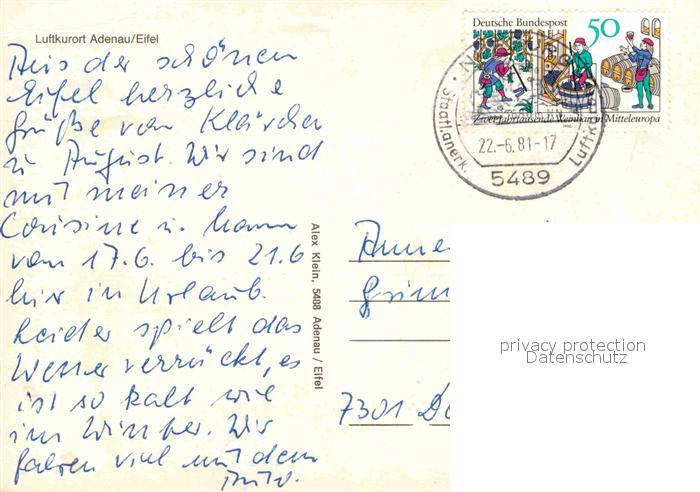 Luftkurort Adenau/Eifel
Aus der schönen
Eifel herzliche
Grüße von Klärchen
u. August. Wir sind
mit meiner
Cousine u. Mann
vom 17.6. bis 21.6
hier in Urlaub.
Leider spielt das
Wetter verrückt, es
ist so kalt wie
im Winter. Wir
fahren viel mit dem
Auto.
Alex Klein, 5488 Adenau / Eifel
Deutsche Bundespost
50
Zweijahrtausende Weinbau in Mitteleuropa
1980
Staatl. anerk. Luftk
22.-6.81-17
5489
Anne
Grim
7301 De
privacy protection
Datenschutz